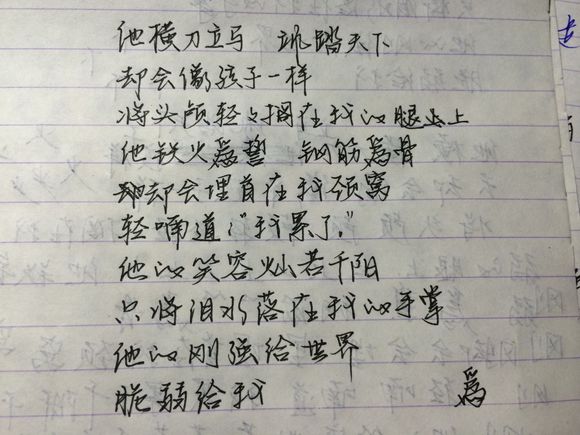 他横刀立马 跳踏天下
却会像孩子一样
将头颅轻々搁在我的腿上
他铁火为誓 钢筋為骨
却会埋首在我颈窝
轻喃道:“我累了。”
他的笑容灿若千阳
只将泪水落在我的手掌
他的刚强给世界
脆弱给我
為